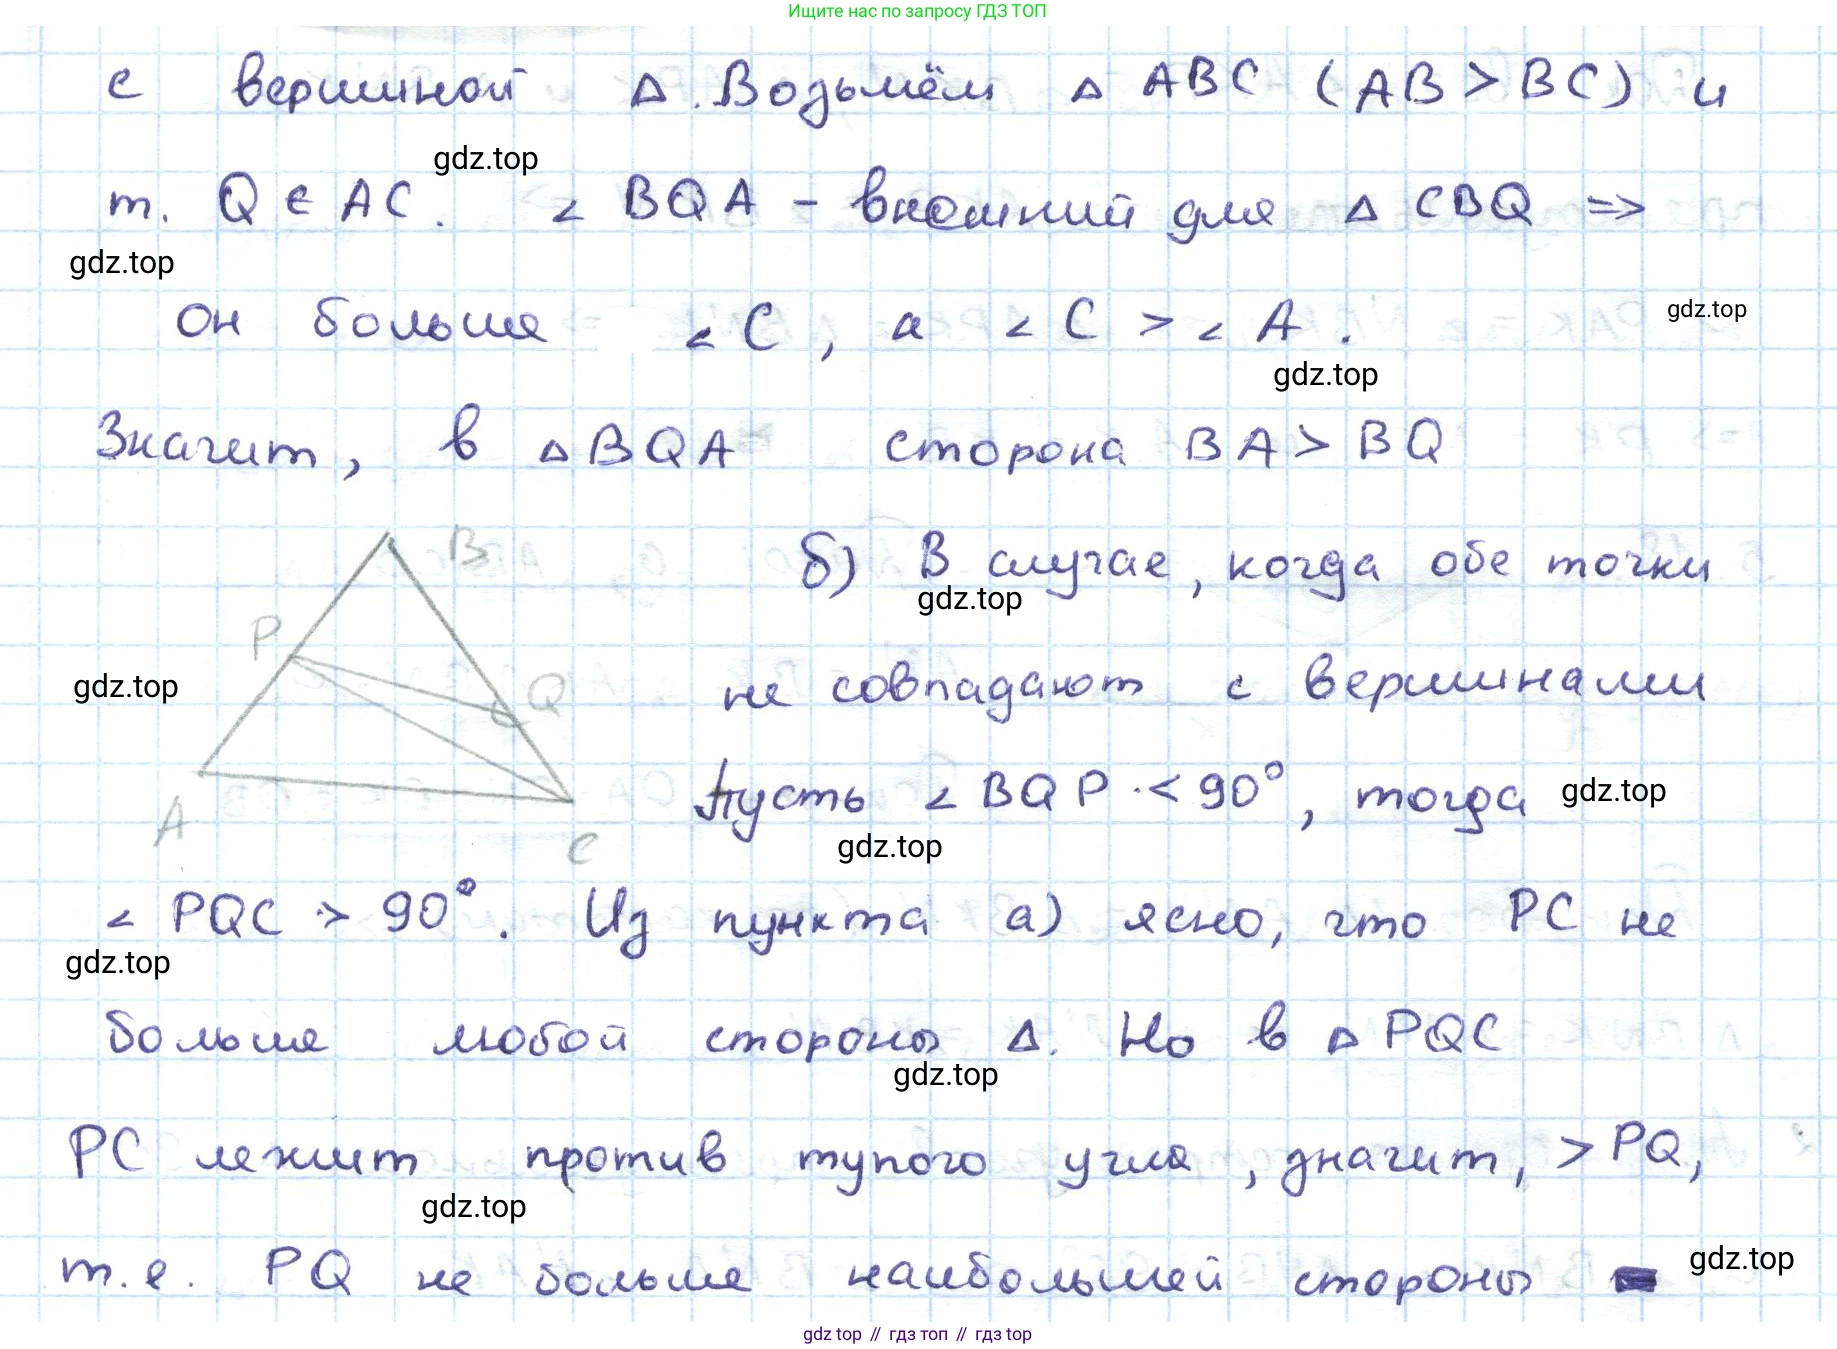 Ищите нас по запросу ГДЗ ТОП
с вершиной Δ. Возьмём Δ ABC (AB > BC) и
gdz.top
т. Q ∈ AC. ∠ BQA - внешний для Δ CBQ =>
gdz.top
он больше ∠ C, а ∠ C > ∠ A.
gdz.top
gdz.top
Значит, в Δ BQA сторона BA > BQ
B
б) В случае, когда обе точки
gdz.top
P
Q
gdz.top
не совпадают с вершинами
Пусть ∠ BQP < 90°, тогда
gdz.top
A
C
gdz.top
∠ PQC > 90°. Из пункта а) ясно, что PC не
gdz.top
больше любой стороны Δ. Но в Δ PQC
gdz.top
PC лежит против тупого угла, значит, > PQ,
gdz.top
т.е. PQ не больше наибольшей стороны
gdz.top
gdz top // гдз топ // гдз top